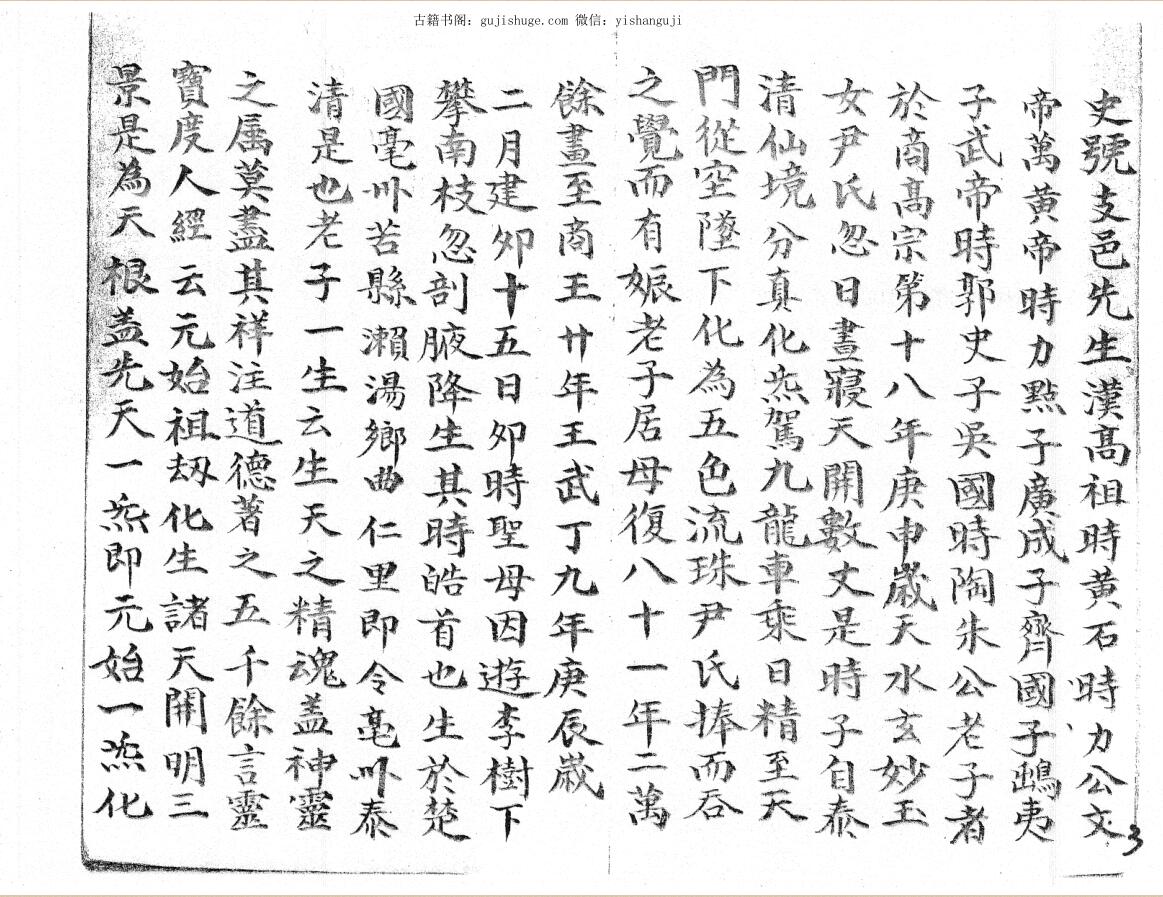 古籍书阁：gujishuge.com 微信：yishanguji
史號支邑先生漢髙祖時黄石時力公文
帝萬黄帝時力㸃子廣成子齊國子鴟夷
子武帝時郭史子吳國時陶朱公老子者
於商髙宗第十八年庚申歲天水玄妙玉
女尹氏忽日晝寢天開數丈是時子自泰
清仙境分真化炁駕九龍車乘日精至天
門從空墜下化為五色流珠尹氏捧而吞
之覺而有娠老子居母復八十一年二萬
餘晝至商王廿年王武丁九年庚辰歲
二月建夘十五日夘時聖母因遊李樹下
攀南枝忽剖腋降生其時皓首也生於楚
國亳州苦縣瀨湯鄉曲仁里即今亳州泰
清是也老子一生云生天之精魂盖神靈
之属莫盡其祥注道德著之五千餘言靈
寶度人經云元始祖刼化生諸天開明三
景是為天根盖先天一炁即元始一炁化
3